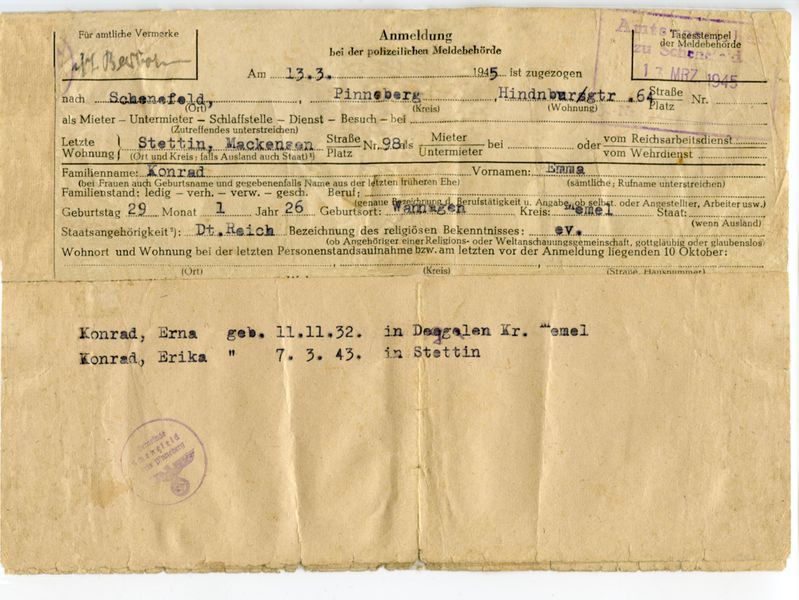 Für amtliche Vermerke
Anmeldung
bei der polizeilichen Meldebehörde
Tagesstempel
der Meldebehörde
Am 13.3. 1945 ist zugezogen
17 MRZ 1945
nach Schenefeld, Pinneberg, Hindnburgstr .64 Straße Platz Nr.
(Ort) (Kreis) (Wohnung)
als Mieter – Untermieter – Schlafstelle – Dienst – Besuch – bei
(Zutreffendes unterstreichen)
Letzte Wohnung Stettin, Mackensen Straße Platz Nr. 98 als Mieter Untermieter bei oder vom Reichsarbeitsdienst vom Wehrdienst
(Ort und Kreis; falls Ausland auch Staat)
Familienname: Konrad Vornamen: Emma
(bei Frauen auch Geburtsname und gegebenenfalls Name aus der letzten früheren Ehe) (sämtliche; Rufname unterstreichen)
Familienstand: ledig – verh. – verw. – gesch. Beruf:
(genaue Bezeichnung d. Berufstätigkeit u. Angabe, ob selbst. oder Angestellter, Arbeiter usw.)
Geburtstag 29 Monat 1 Jahr 26 Geburtsort: Kreis: Memel Staat:
(wenn Ausland)
Staatsangehörigkeit ²): Dt. Reich Bezeichnung des religiösen Bekenntnisses: ev.
(ob Angehöriger einer Religions- oder Weltanschauungsgemeinschaft, gottgläubig oder glaubenslos)
Wohnort und Wohnung bei der letzten Personenstandsaufnahme bzw. am letzten vor der Anmeldung liegenden 10 Oktober:
(Ort) (Kreis) (Straße, Hausnummer)
Konrad, Erna geb. 11.11.32. in Kr. Memel
Konrad, Erika " 7. 3. 43. in Stettin
Gemeinde
Schenefeld